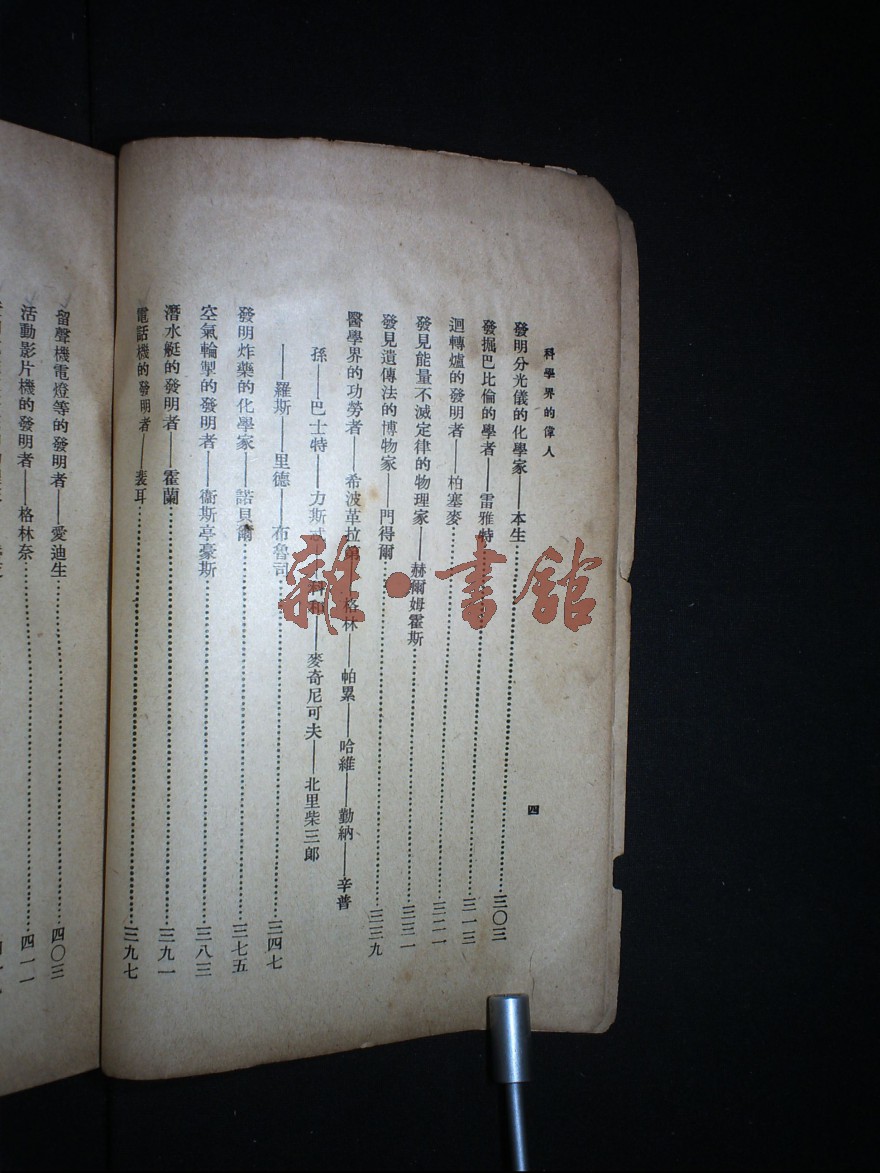 科學界的偉人
四
發明分光儀的化學家——本生……三〇三
發掘巴比倫的學者——雷雅特……三一三
迴轉爐的發明者——柏塞麥……三二一
發見能量不滅定律的物理家——赫爾姆霍斯……三三一
發見遺傳法的博物家——門得爾……三三九
醫學界的功勞者——希波革拉第——格林——帕累——哈維——勤納——辛普
孫——巴士特——力斯忒——科和——麥奇尼可夫——北里柴三郎
——羅斯——里德——布魯司……三四七
發明炸藥的化學家——諾貝爾……三七五
空氣輪掣的發明者——衞斯亭豪斯……三八三
潛水艇的發明者——霍蘭……三九一
電話機的發明者——裴耳……三九七
留聲機電燈等的發明者——愛迪生……四〇三
活動影片機的發明者——格林奈……四一一
雜·書館